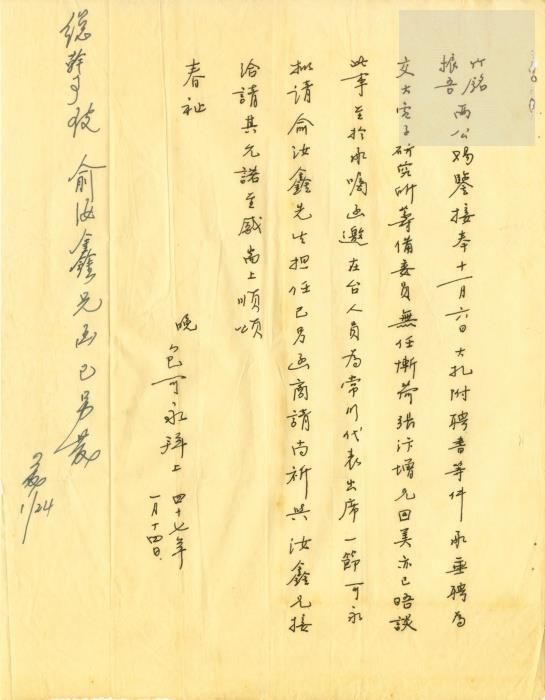 竹銘
振吾 兩公賜鑒接奉十一月六日大札附聘書等件承垂聘為
交大電子研究所籌備委員無任慚荷張汴增兄回美亦已晤談
此事至於承囑函邀在台人員為常川代表出席一節可永
擬請俞汝鑫先生担任已另函商請尚祈與汝鑫兄接
洽請其允諾至感耑上順頌
春祉
晚 包可永拜上 四十七年
一月十四日
總幹事啟 俞汝鑫兄函已另發
1/24